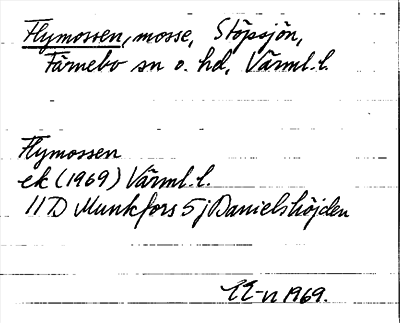 Flymossen, mosse, Stöpsjön,
Färnebo sn o. hd, Värml. l.
Flymossen
ek (1969) Värml. l.
11D Munkfors 5j Danielshöjden
1969.